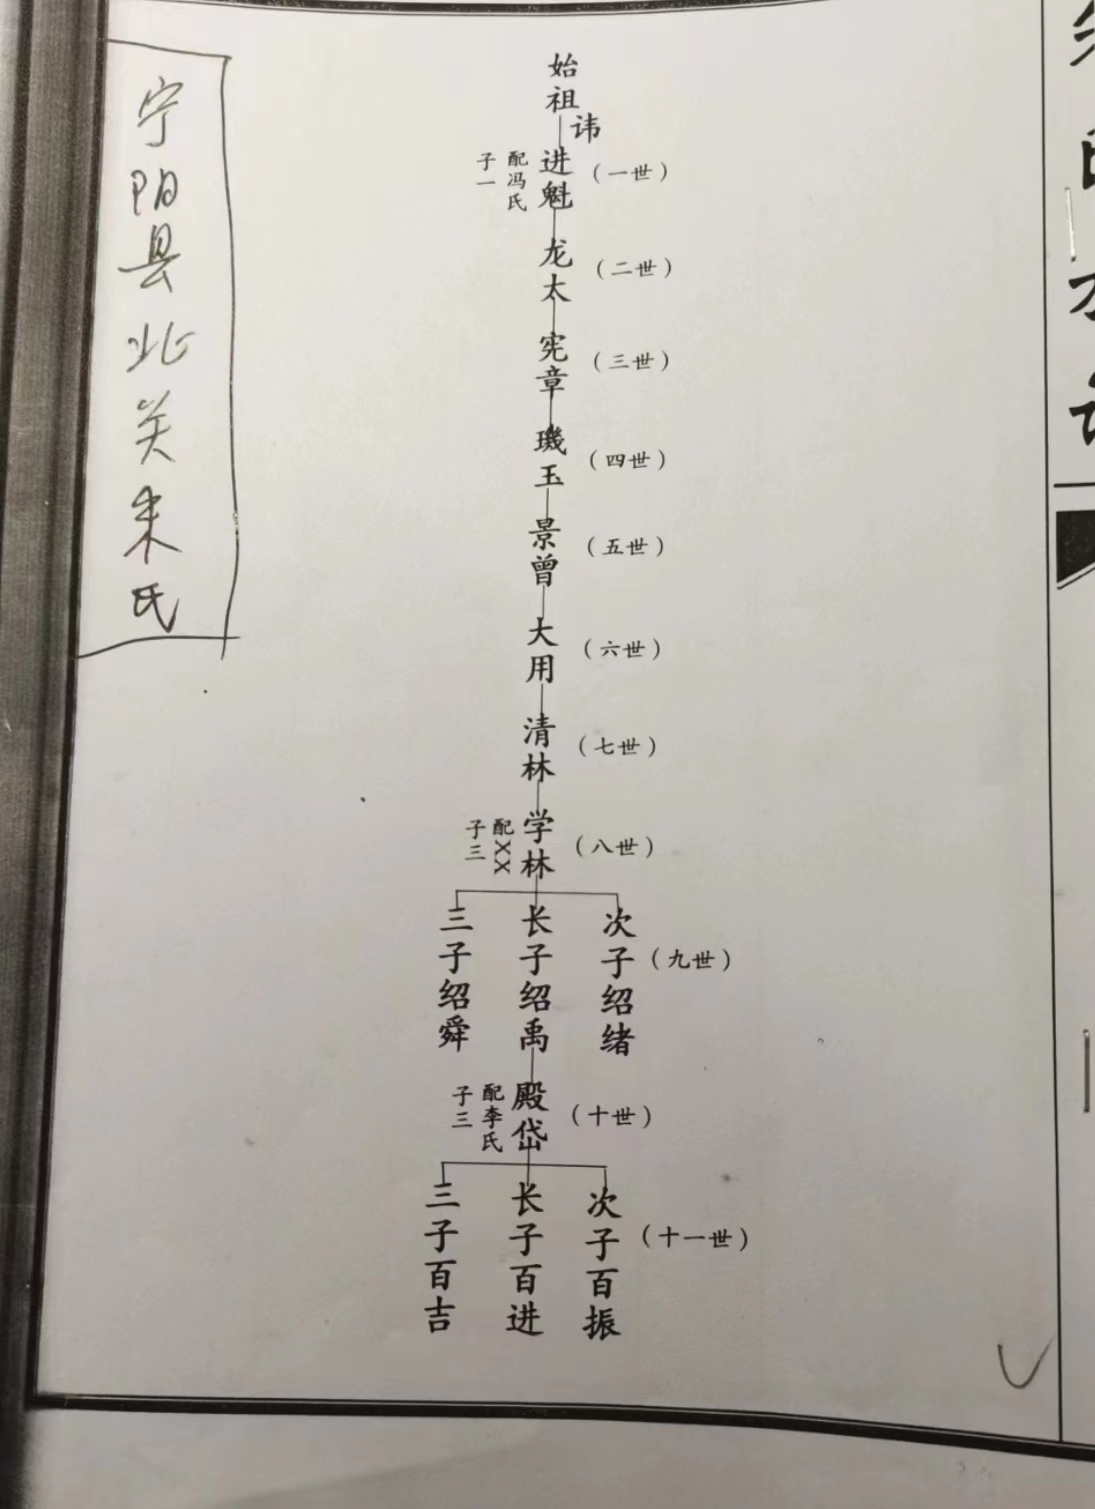 宁阳县北关朱氏
始祖
讳
进魁
配冯氏
子一
（一世）
龙太
（二世）
宪章
（三世）
玑玉
（四世）
景曾
（五世）
大用
（六世）
清林
（七世）
学林
配XX
子三
（八世）
次子绍绪
长子绍禹
三子绍舜
（九世）
殿岱
配李氏
子三
（十世）
次子百振
长子百进
三子百吉
（十一世）